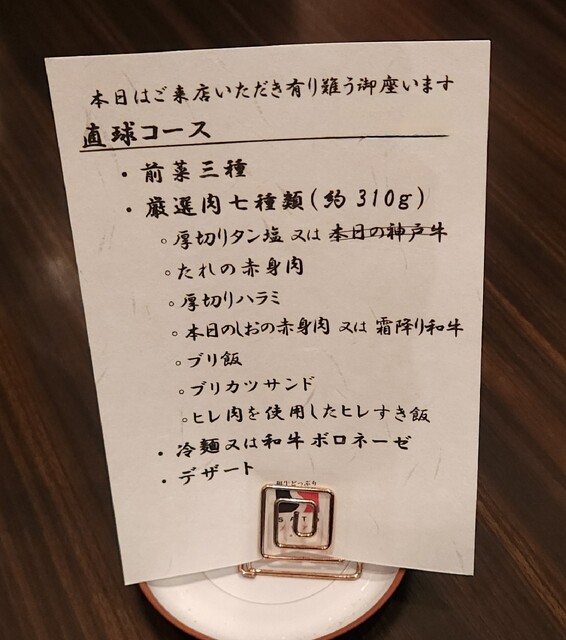 本日はご来店いただき有り難う御座います
直球コース
・前菜三種
・厳選肉七種類(約310g)
。厚切りタン塩 又は 本日の神戸牛
。たれの赤身肉
。厚切りハラミ
。本日のしおの赤身肉 又は 霜降り和牛
。ブリ飯
。ブリカツサンド
。ヒレ肉を使用したヒレすき飯
・冷麺又は和牛ボロネーゼ
・デザート